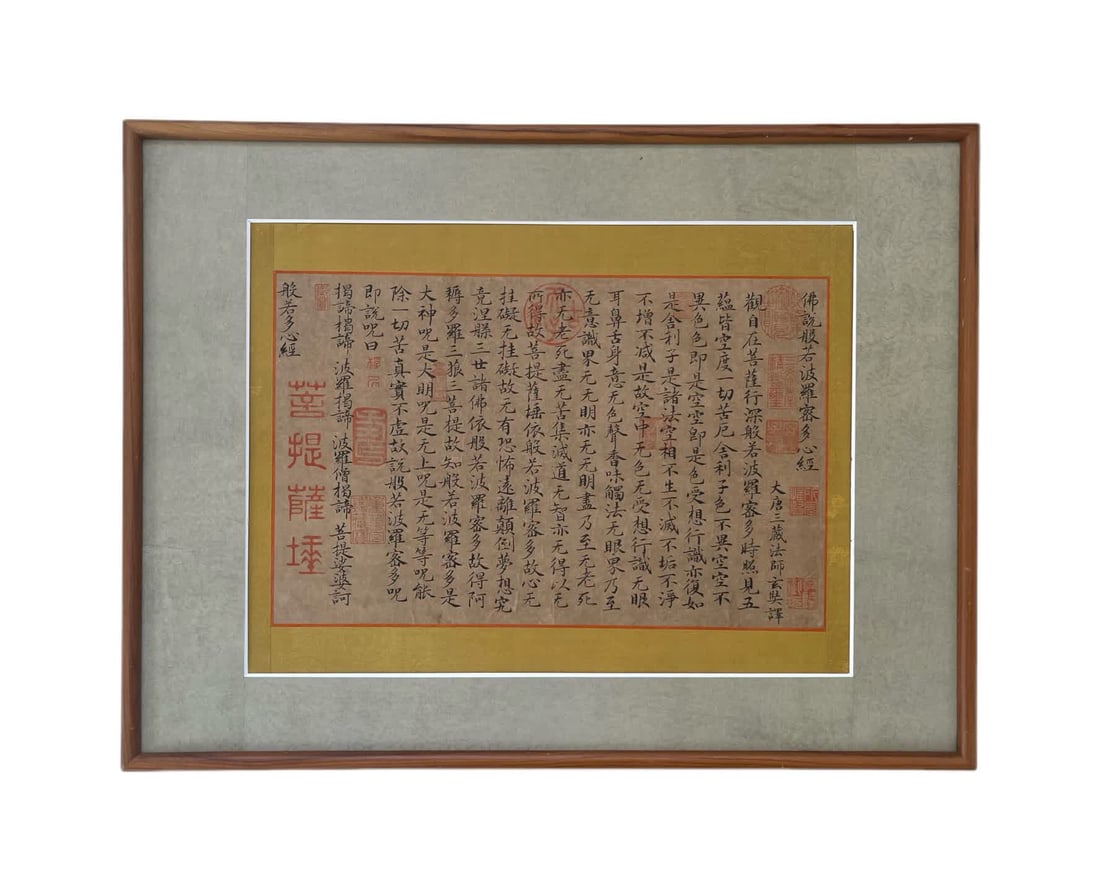 佛說般若波羅密多心經
大唐三藏法師玄奘譯
觀自在菩薩行深般若波羅密多時照見五
蘊皆空度一切苦厄舍利子色不異空空不
異色色即是空空即是色受想行識亦復如
是舍利子是諸法空相不生不滅不垢不淨
不增不減是故空中无色无受想行識无眼
耳鼻舌身意无色聲香味觸法无眼界乃至
无意識界无无明亦无无明盡乃至无老死
亦无老死盡无苦集滅道无智亦无得以无
所得故菩提薩埵依般若波羅密多故心无
挂礙无挂礙故无有恐怖遠離顛倒夢想究
竟涅槃三世諸佛依般若波羅密多故得阿
耨多羅三藐三菩提故知般若波羅密多是
大神呪是大明呪是无上呪是无等等呪能
除一切苦真實不虛故說般若波羅密多呪
即說呪曰
揭諦揭諦 波羅揭諦 波羅僧揭諦 菩提娑婆訶
般若多心經
菩提薩埵